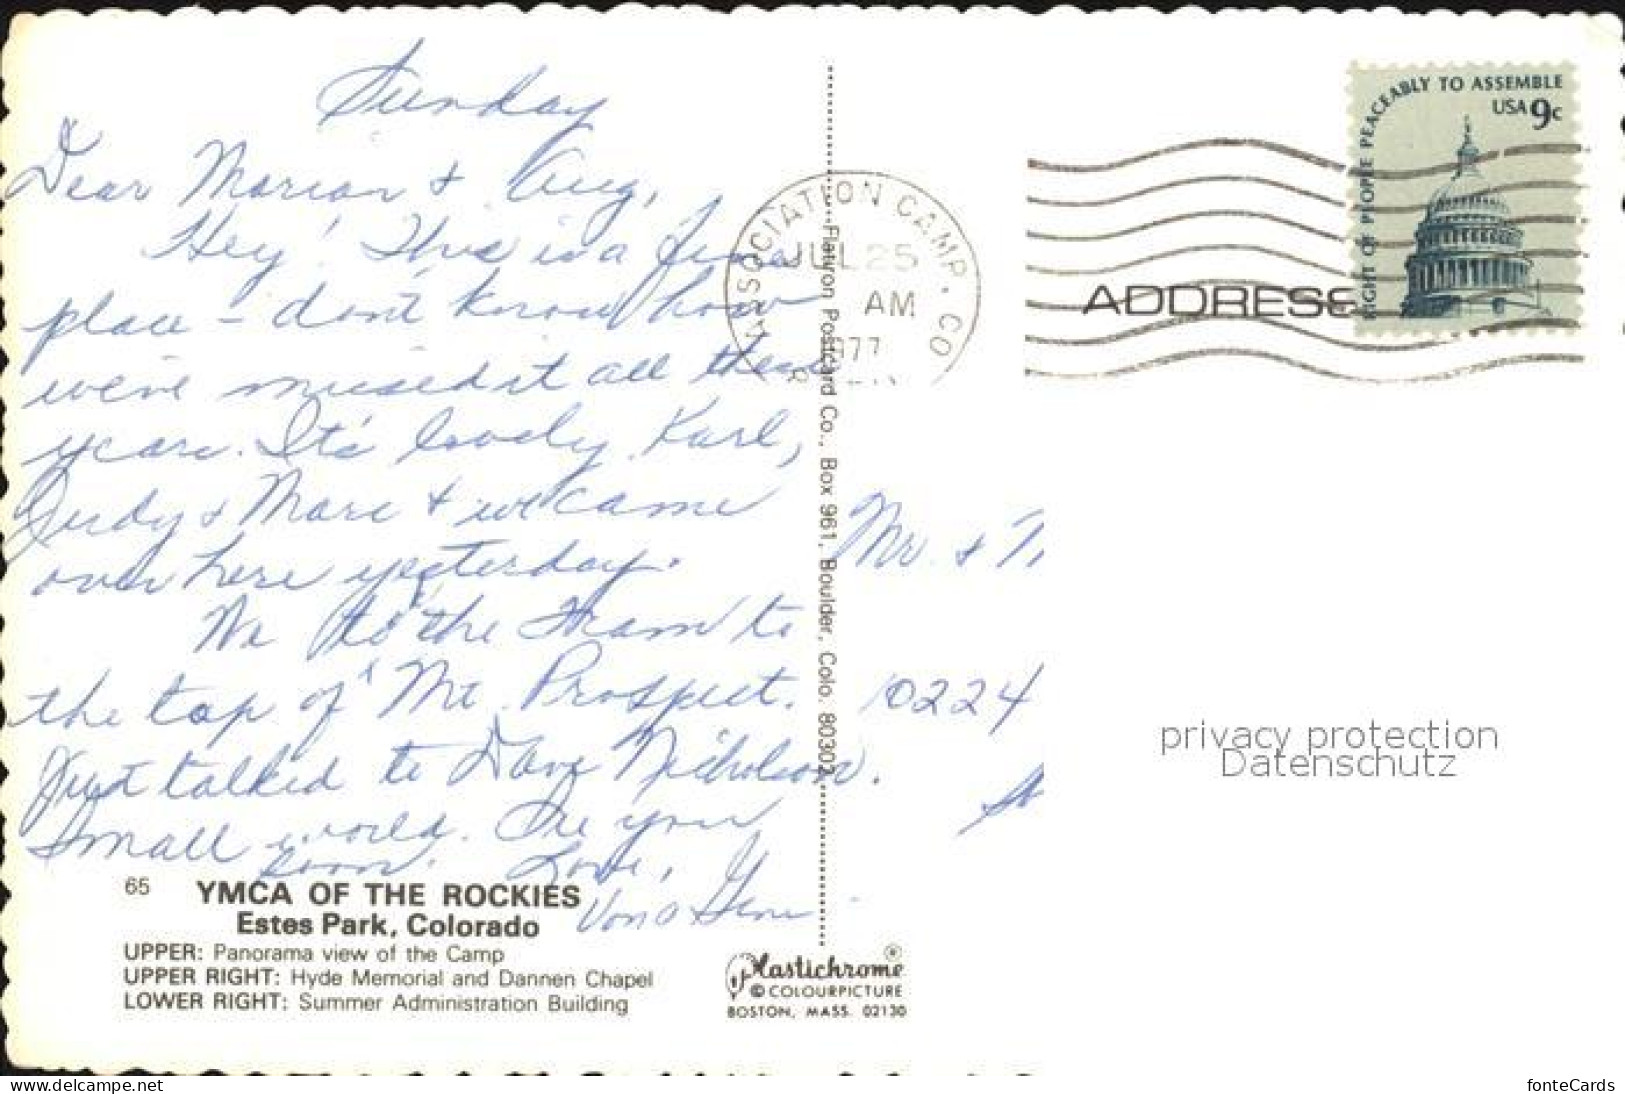 Sunday
Dear Marian & Aug,
Hey! This is a fine
place - don't know how
we've missed it all these
years. It's lovely. Karl,
Judy & Marc & we came
over here yesterday.
We to the tram to
the top of Mt. Prospect.
Just talked to Dave Nicholson.
Small world. See you
soon. Love,
Von & Gene
65 YMCA OF THE ROCKIES
Estes Park, Colorado
UPPER: Panorama view of the Camp
UPPER RIGHT: Hyde Memorial and Dannen Chapel
LOWER RIGHT: Summer Administration Building
Flatiron Postcard Co., Box 961, Boulder, Colo. 80302
Plastichrome®
© COLOURPICTURE
BOSTON, MASS. 02130
ASSOCIATION CAMP, CO
JUL 25
AM
977
RIGHT OF PEOPLE PEACEABLY TO ASSEMBLE
USA 9c
ADDRESS
Mr. &
10224
privacy protection
Datenschutz
www.delcampe.net
fonteCards